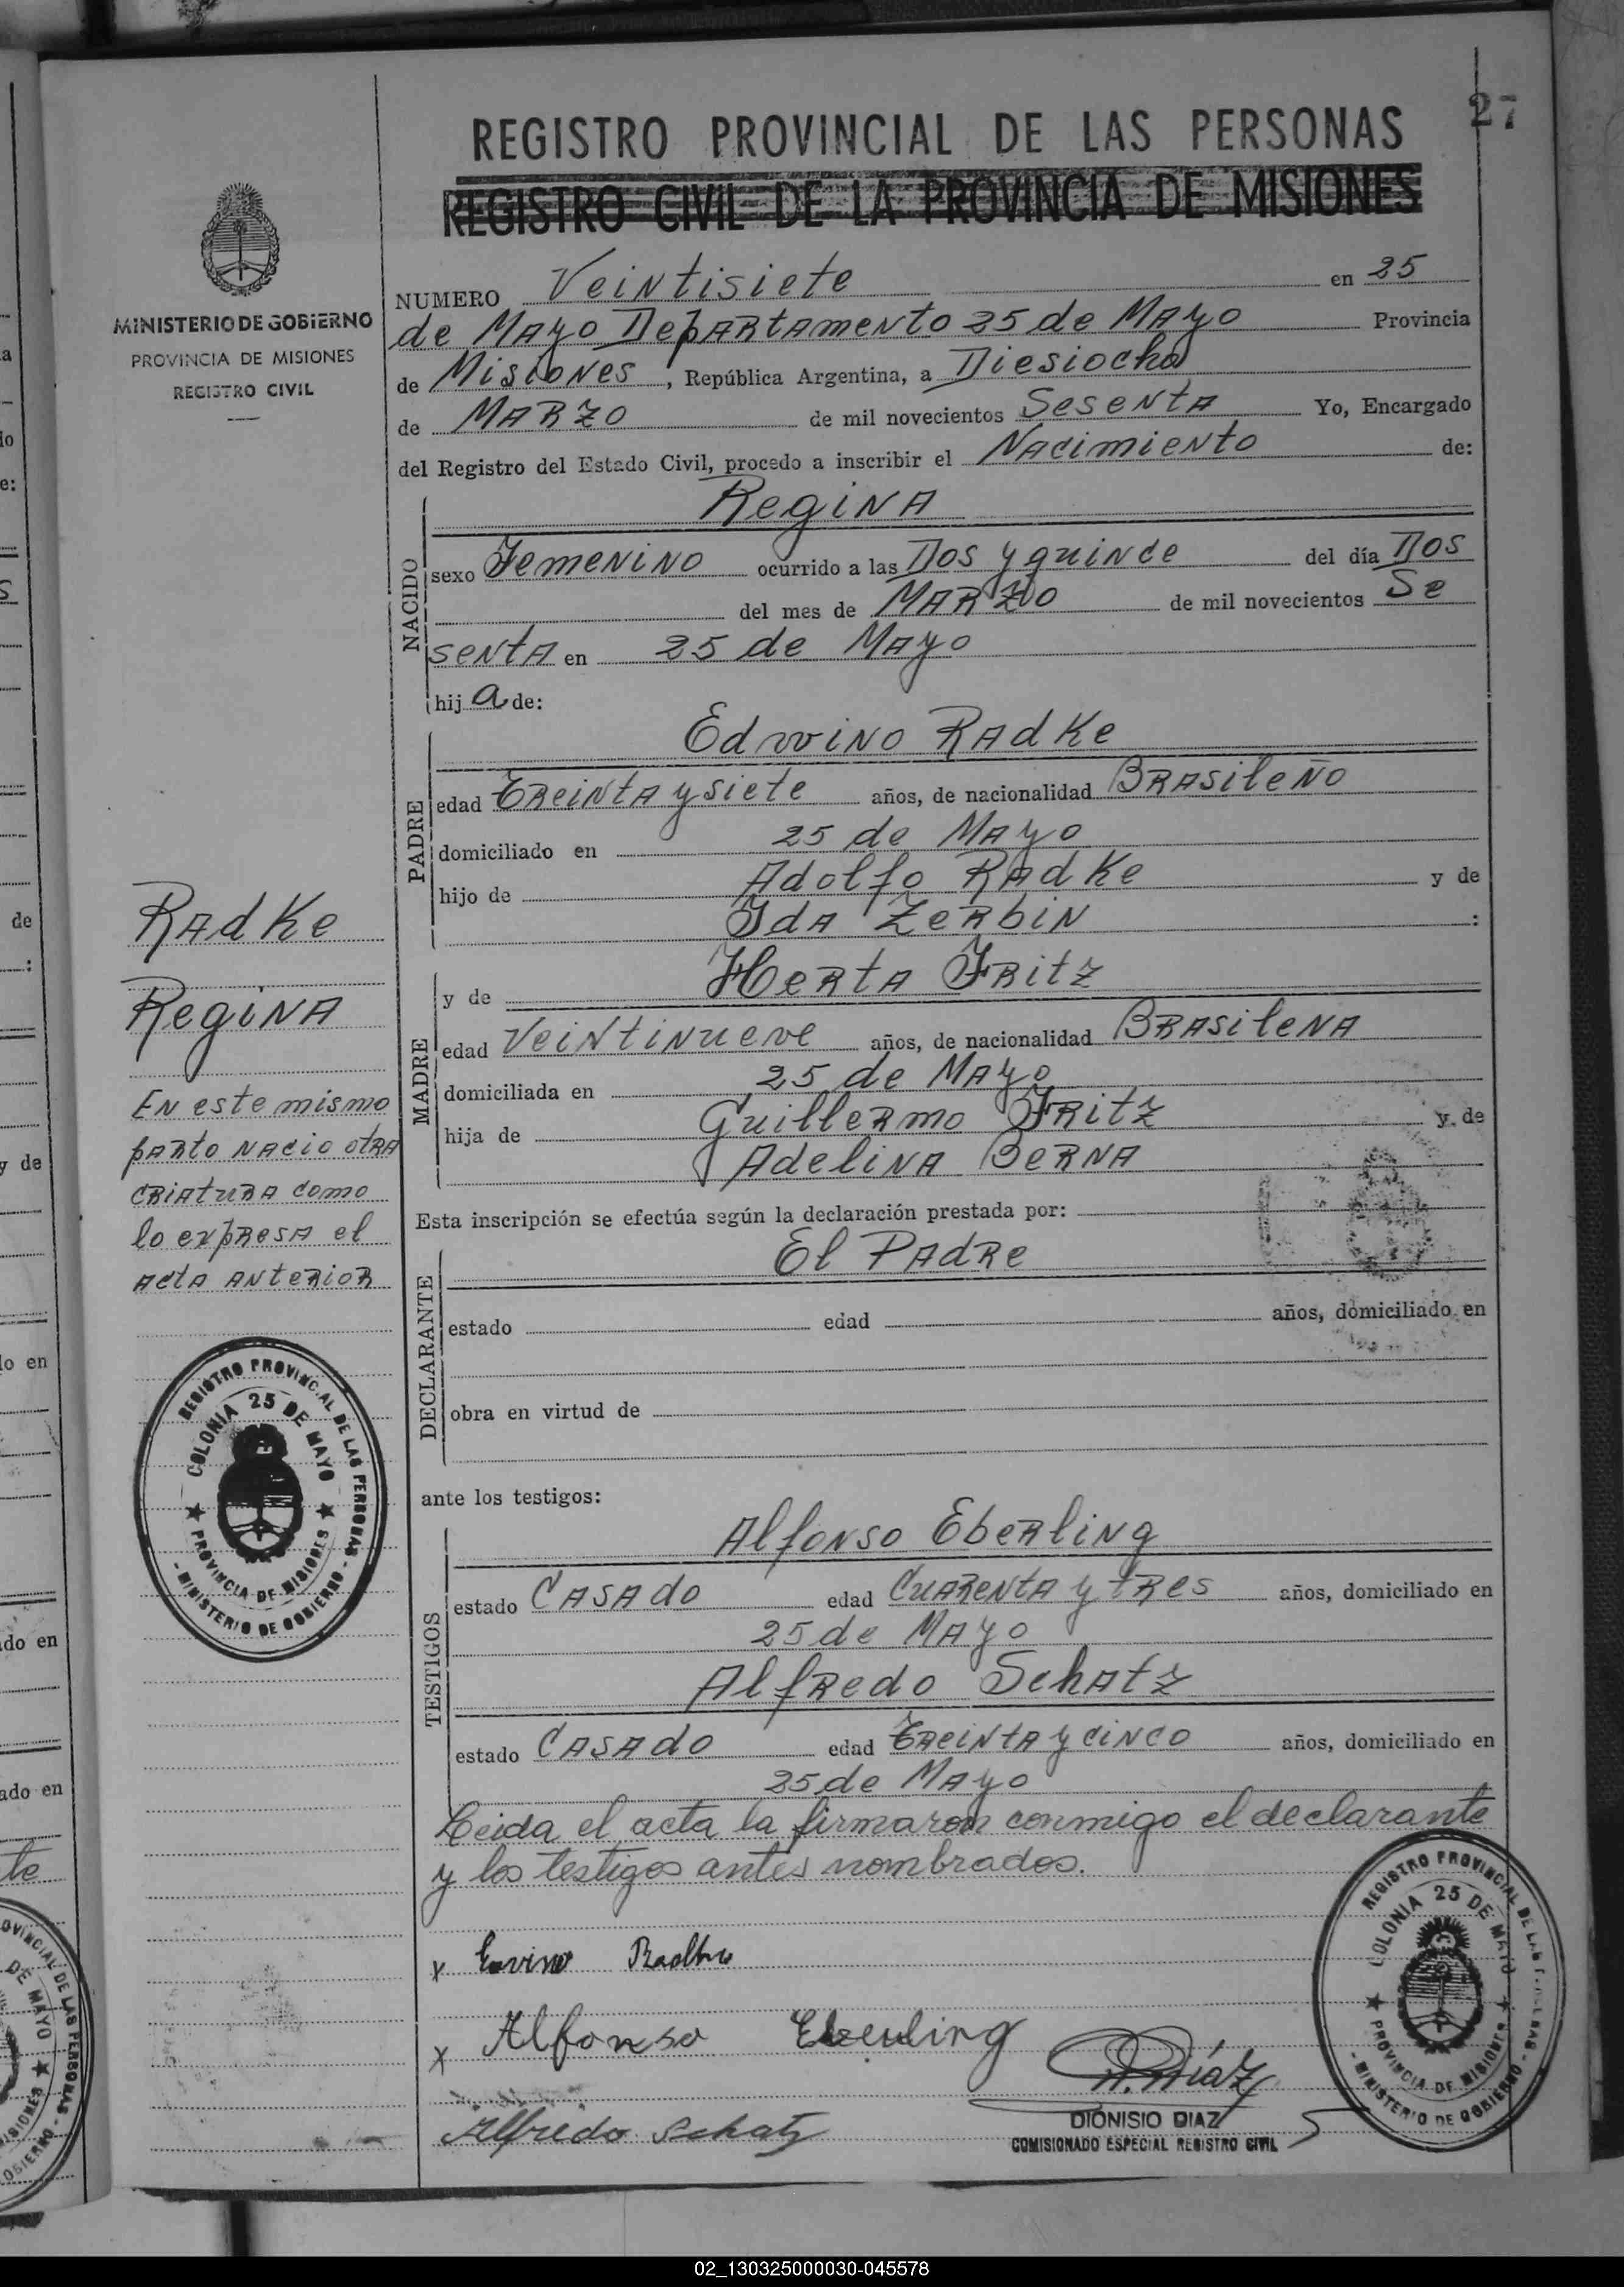 27
REGISTRO PROVINCIAL DE LAS PERSONAS
REGISTRO CIVIL DE LA PROVINCIA DE MISIONES
MINISTERIO DE GOBIERNO
PROVINCIA DE MISIONES
REGISTRO CIVIL
NUMERO Veintisiete en 25
de Mayo Departamento 25 de Mayo Provincia
de Misiones, República Argentina, a Diesiocho
de Marzo de mil novecientos Sesenta Yo, Encargado
del Registro del Estado Civil, procedo a inscribir el Nacimiento de:
NACIDO
Regina
sexo Femenino ocurrido a las Dos y quince del día Dos
del mes de Marzo de mil novecientos Se
senta en 25 de Mayo
hij a de:
PADRE
Edwino Radke
edad Treinta y siete años, de nacionalidad Brasileño
domiciliado en 25 de Mayo
hijo de Adolfo Radke y de
Ida Zerbin :
MADRE
y de Herta Fritz
edad Veintinueve años, de nacionalidad Brasilena
domiciliada en 25 de Mayo
hija de Guillermo Fritz y de
Adelina Berna
Esta inscripción se efectúa según la declaración prestada por:
DECLARANTE
El Padre
estado edad años, domiciliado en
obra en virtud de
ante los testigos:
TESTIGOS
Alfonso Eberling
estado Casado edad Cuarenta y tres años, domiciliado en
25 de Mayo
Alfredo Schatz
estado Casado edad Treinta y cinco años, domiciliado en
25 de Mayo
Leida el acta la firmaron conmigo el declarante
y los testigos antes nombrados.
x Ervino Radke
x Alfonso Eberling
Alfredo Schatz
D. Díaz
DIONISIO DIAZ
COMISIONADO ESPECIAL REGISTRO CIVIL
Radke
Regina
En este mismo
parto nacio otra
criatura como
lo expresa el
acta anterior
REGISTRO PROVINCIAL DE LAS PERSONAS
COLONIA 25 DE MAYO
PROVINCIA DE MISIONES
MINISTERIO DE GOBIERNO
REGISTRO PROVINCIAL DE LAS PERSONAS
COLONIA 25 DE MAYO
PROVINCIA DE MISIONES
MINISTERIO DE GOBIERNO
02_130325000030-045578